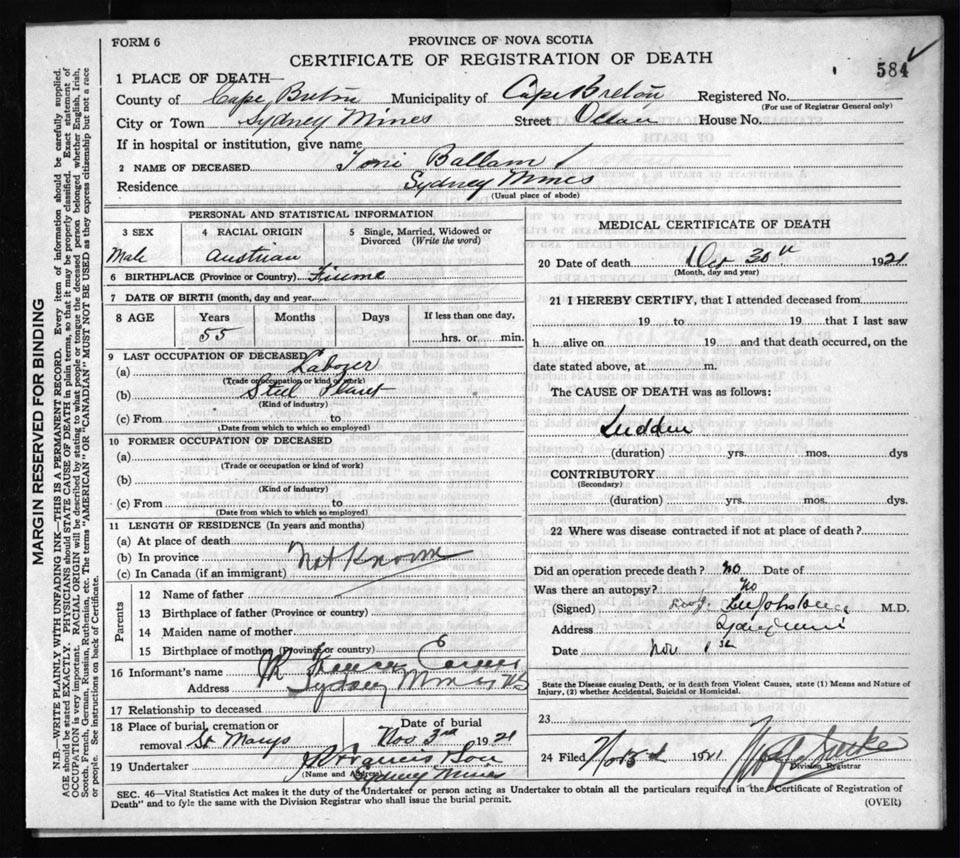 FORM 6
PROVINCE OF NOVA SCOTIA
CERTIFICATE OF REGISTRATION OF DEATH
584
1 PLACE OF DEATH—
County of Cape Breton Municipality of Cape Breton Registered No.
(For use of Registrar General only)
City or Town Sydney Mines Street Ocean House No.
If in hospital or institution, give name
2 NAME OF DECEASED Toni Ballam
Residence Sydney Mines
(Usual place of abode)
PERSONAL AND STATISTICAL INFORMATION
3 SEX 4 RACIAL ORIGIN 5 Single, Married, Widowed or Divorced (Write the word)
Male Austrian
6 BIRTHPLACE (Province or Country) Fiume
7 DATE OF BIRTH (month, day and year
8 AGE Years Months Days If less than one day,
55 hrs. or min.
9 LAST OCCUPATION OF DECEASED
(a) Laborer
(Trade or occupation or kind of work)
(b) Steel Plant
(Kind of industry)
(c) From to
(Date from which to which so employed)
10 FORMER OCCUPATION OF DECEASED
(a)
(Trade or occupation or kind of work)
(b)
(Kind of industry)
(c) From to
(Date from which to which so employed)
11 LENGTH OF RESIDENCE (In years and months)
(a) At place of death
(b) In province Not Known
(c) In Canada (if an immigrant)
Parents
12 Name of father
13 Birthplace of father (Province or country)
14 Maiden name of mother
15 Birthplace of mother (Province or country)
16 Informant's name
Address Sydney Mines NS
17 Relationship to deceased
18 Place of burial, cremation or removal St Marys
Date of burial Nov 3rd 1921
19 Undertaker Francis & Son
(Name and Address)
Sydney Mines
MEDICAL CERTIFICATE OF DEATH
20 Date of death Oct 30th 1921
(Month, day and year)
21 I HEREBY CERTIFY, that I attended deceased from
19 to 19 that I last saw
h alive on 19 and that death occurred, on the
date stated above, at m.
The CAUSE OF DEATH was as follows:
Sudden
(duration) yrs. mos. dys
CONTRIBUTORY
(Secondary)
(duration) yrs. mos. dys.
22 Where was disease contracted if not at place of death?
Did an operation precede death? No Date of
Was there an autopsy? No
(Signed) Johnstone M.D.
Address
Date Nov 1st
State the Disease causing Death, or in death from Violent Causes, state (1) Means and Nature of Injury, (2) whether Accidental, Suicidal or Homicidal.
23
24 Filed Nov 3d 1921
Division Registrar
SEC. 46—Vital Statistics Act makes it the duty of the Undertaker or person acting as Undertaker to obtain all the particulars required in the Certificate of Registration of
Death" and to fyle the same with the Division Registrar who shall issue the burial permit. (OVER)
MARGIN RESERVED FOR BINDING
N.B.—WRITE PLAINLY WITH UNFADING INK—THIS IS A PERMANENT RECORD. Every item of information should be carefully supplied.
AGE should be stated EXACTLY. PHYSICIANS should STATE CAUSE OF DEATH in plain terms, so that it may be properly classified. Exact statement of
OCCUPATION is very important. RACIAL ORIGIN will be described by stating to what people or tongue the deceased person belonged whether English, Irish,
Scotch, French, German, Russian, Ruthenian, etc. The terms "AMERICAN" OR "CANADIAN" MUST NOT BE USED as they express citizenship but not a race
or people. See instructions on back of Certificate.